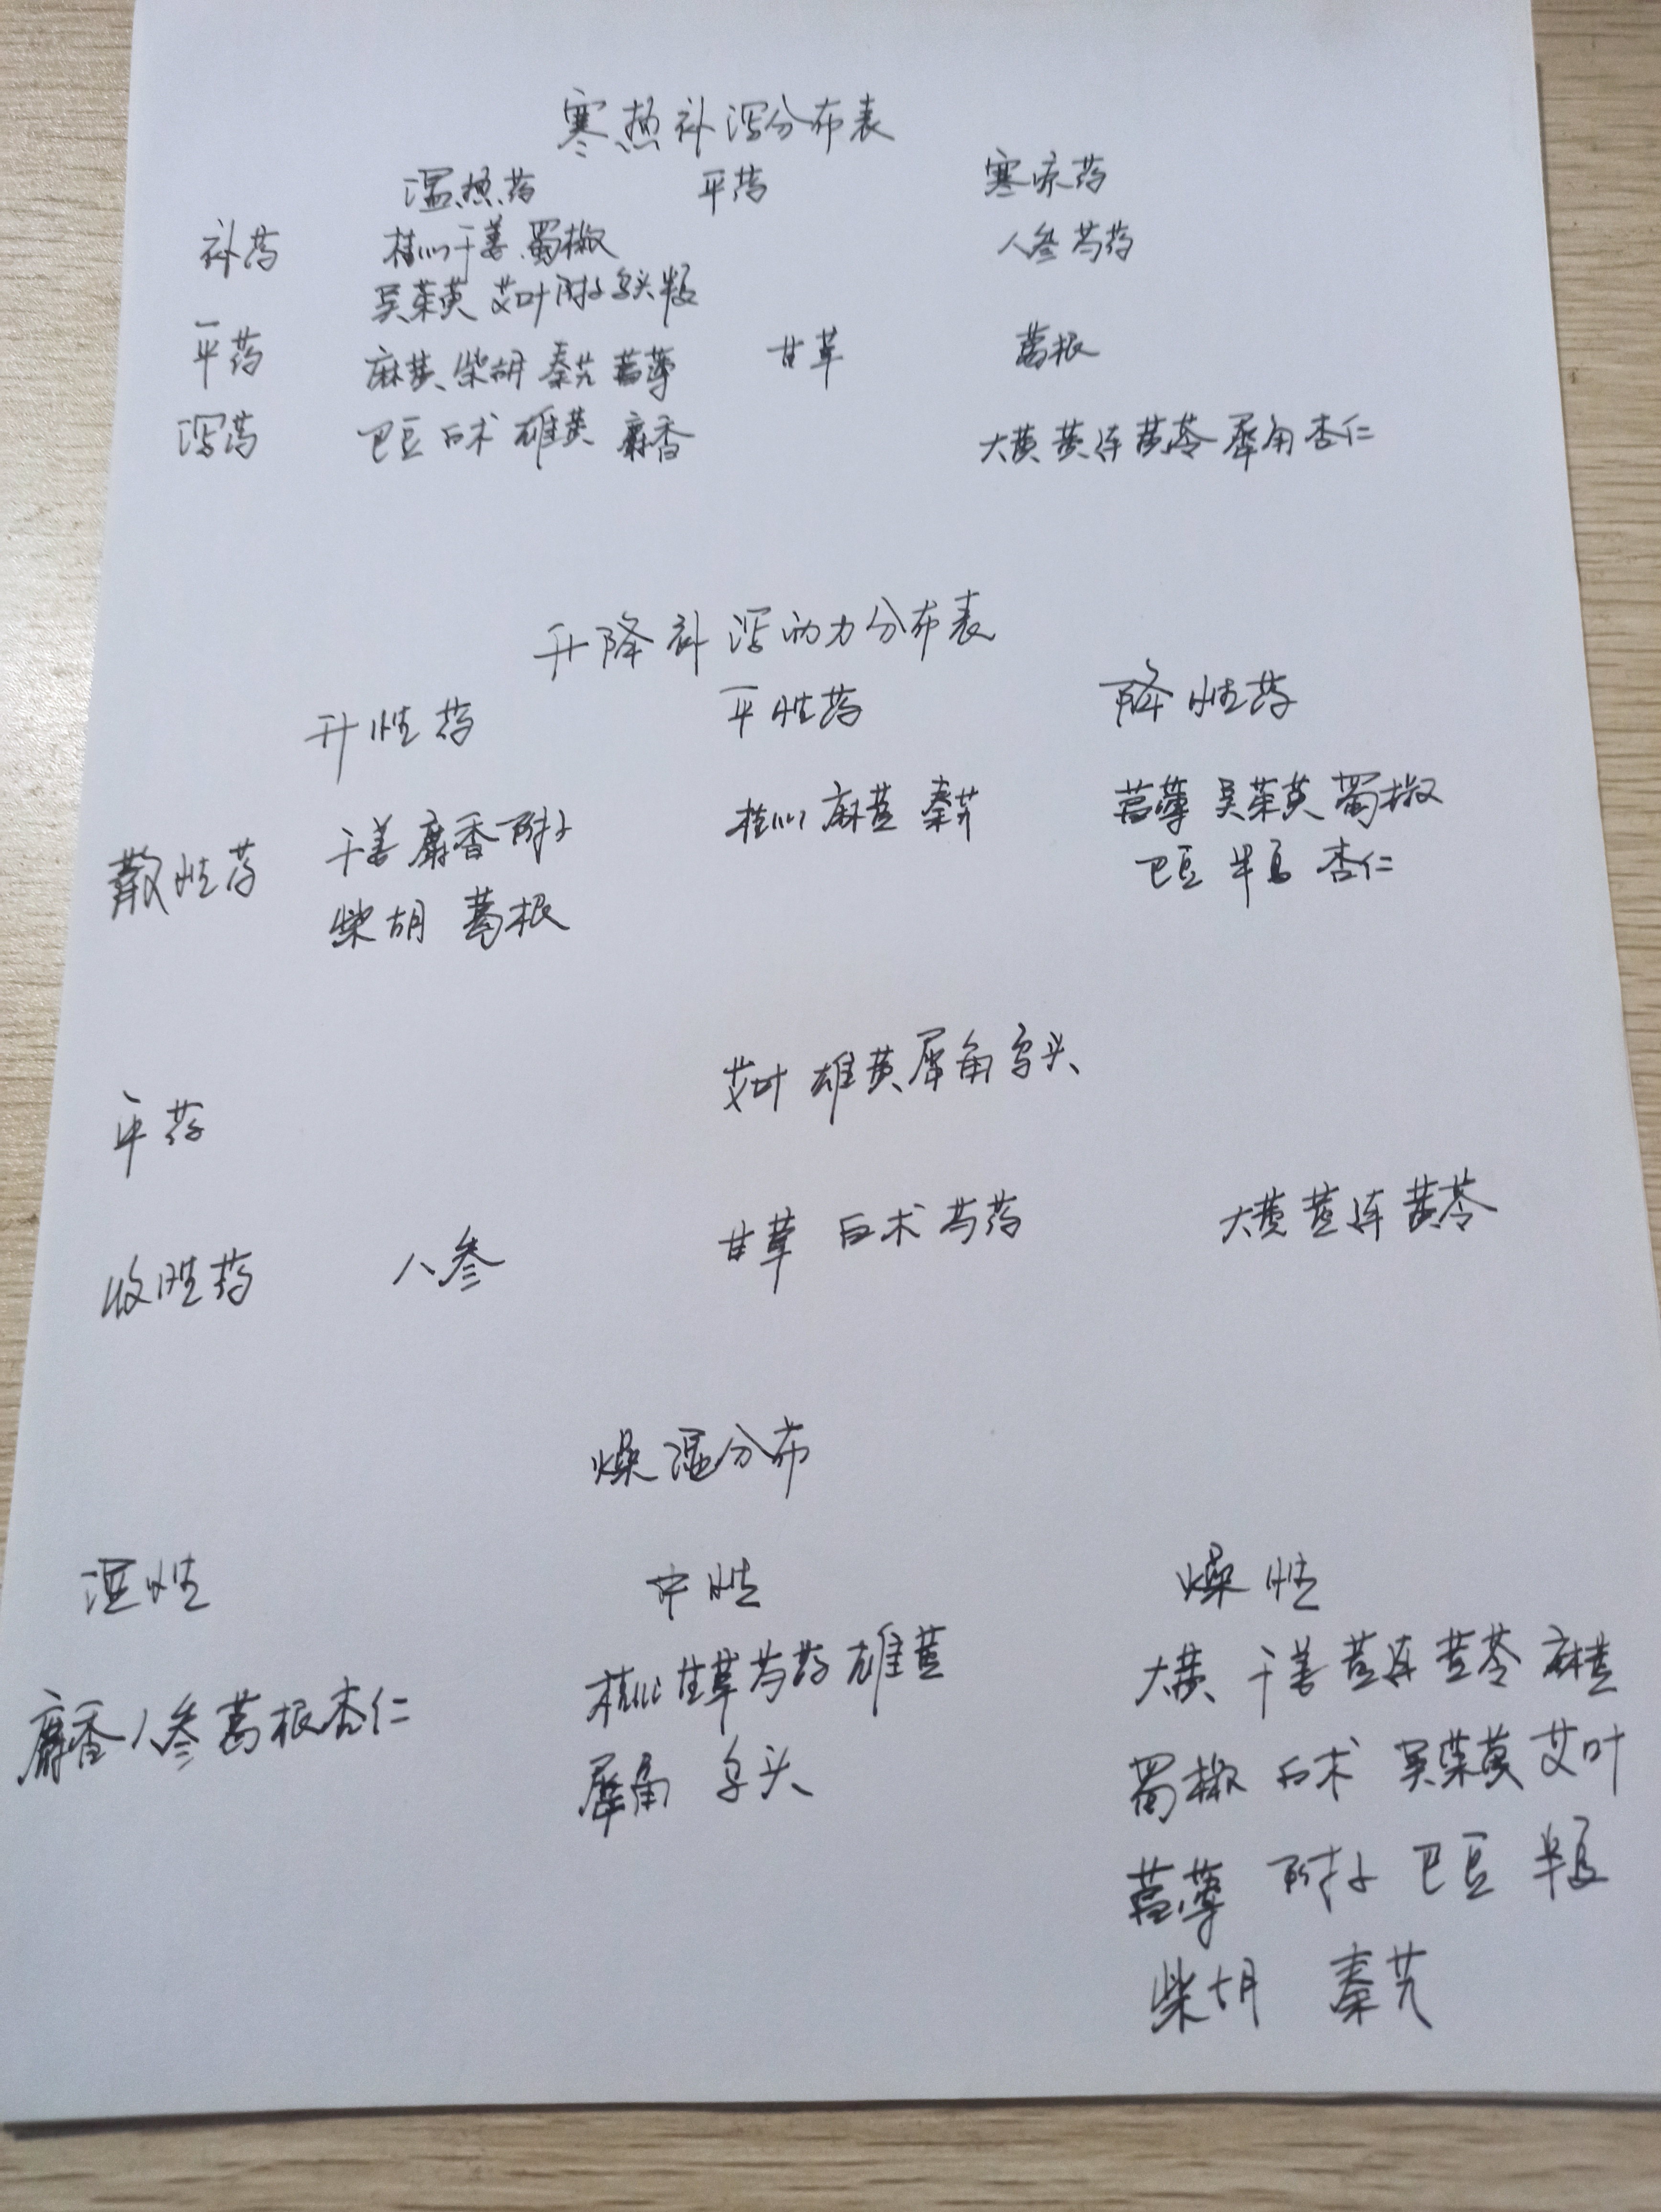 寒热补泻分布表
温热药 平药 寒凉药
补药 桂心 干姜 蜀椒 人参 芍药
吴茱萸 艾叶 附子 乌头 半夏
平药 麻黄 柴胡 秦艽 葶苈 甘草 葛根
泻药 巴豆 白术 雄黄 麝香 大黄 黄连 黄芩 犀角 杏仁
升降补泻动力分布表
升性药 平性药 降性药
散性药 干姜 麝香 附子 桂心 麻黄 秦艽 吴茱萸 蜀椒
柴胡 葛根 巴豆 半夏 杏仁
平药 艾叶 雄黄 犀角 乌头
收性药 人参 甘草 白术 芍药 大黄 黄连 黄芩
燥湿分布
湿性 中性 燥性
麝香 人参 葛根 杏仁 桂心 甘草 芍药 雄黄 大黄 干姜 黄连 黄芩 麻黄
犀角 乌头 蜀椒 白术 吴茱萸 艾叶
附子 巴豆 半夏
柴胡 秦艽